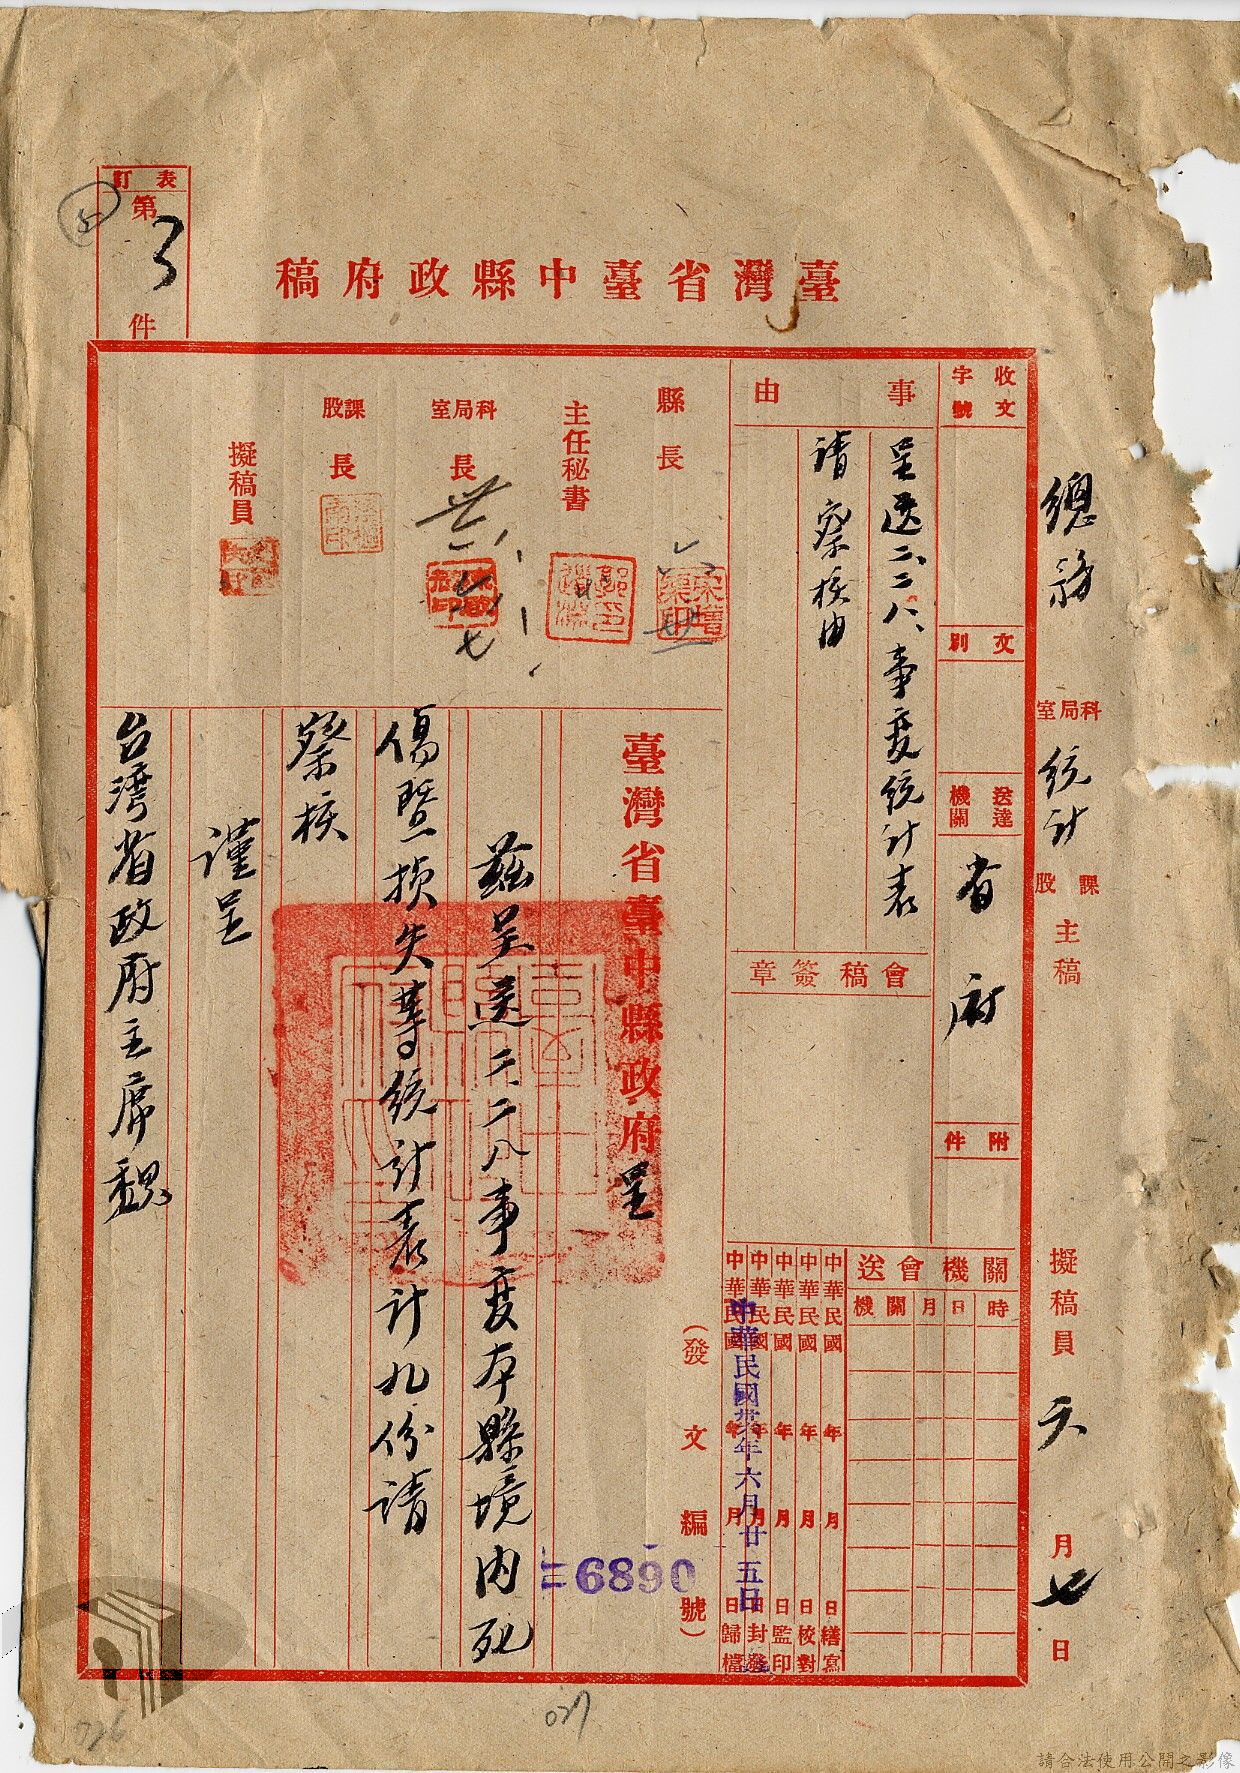 表訂
第
3
件
臺灣省臺中縣政府稿
總務
科局室
統計
課股
主稿
擬稿員
月七日
收文
字號
文別
送達機關
省府
附件
事由
呈送二、二八、事變統計表
請察核由
會稿簽章
關機會送
機關
月
日
時
中華民國 年 月 日繕寫
中華民國 年 月 日校對
中華民國 年 月 日監印
中華民國 年 月 日封發
中華民國 年 月 日歸檔
中華民國卅六年六月廿五日
(發文編號)
二6890
縣長
主任秘書
科局室長
課股長
擬稿員
臺灣省臺中縣政府呈
茲呈送二、二八事變本縣境內死
傷暨損失等統計表計九份請
察核
謹呈
台灣省政府主席魏
026
027
請合法使用公開之影像